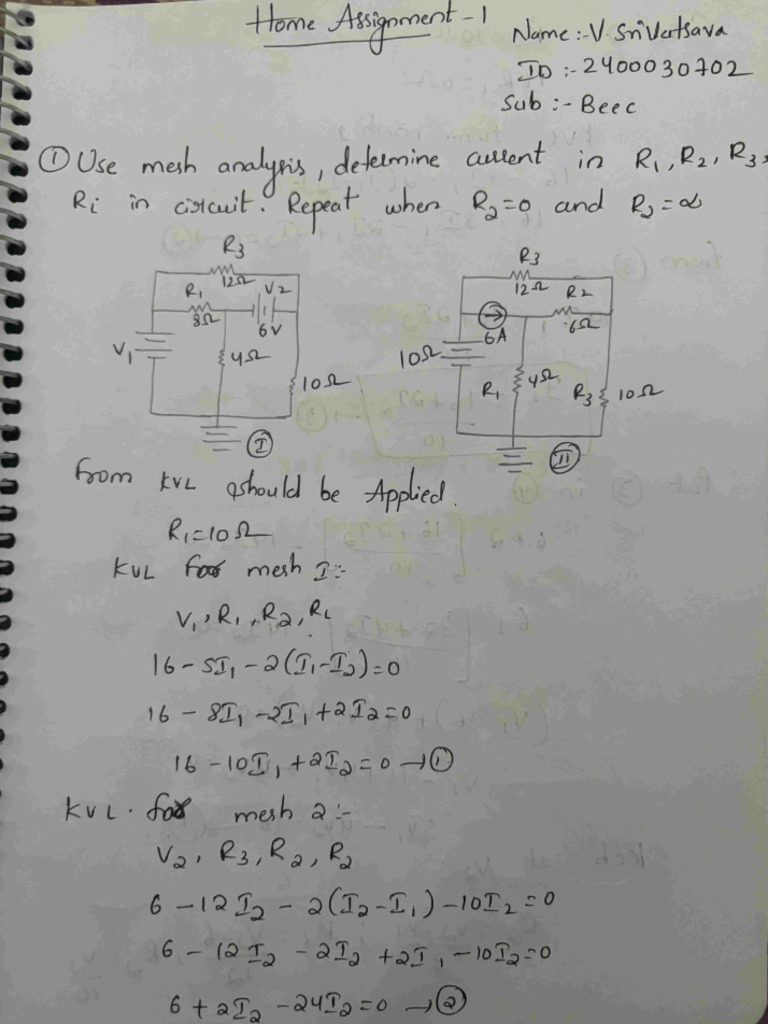 Home Assignment - 1
Name :- V. SriVertsava
ID :- 2400030702
Sub :- Beec
① Use mesh analysis, determine current in R1, R2, R3,
Ri in circuit. Repeat when R2=0 and R2=∞
R3
12Ω
R1
8Ω
V2
6V
V1
4Ω
10Ω
I
R3
12Ω
R2
6Ω
6A
10Ω
R1
4Ω
R3
10Ω
II
from KVL should be Applied.
R1=10Ω
KVL for mesh I:-
V1, R1, R2, RL
16 - 5I1 - 2(I1-I2)=0
16 - 8I1 - 2I1 + 2I2=0
16 - 10I1 + 2I2=0 →①
KVL. for mesh 2:-
V2, R3, R2, R2
6 - 12I2 - 2(I2-I1) - 10I2=0
6 - 12I2 - 2I2 + 2I1 - 10I2=0
6 + 2I2 - 24I2=0 →②